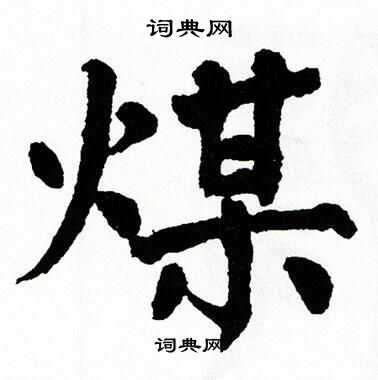 词典网
煤
词典网